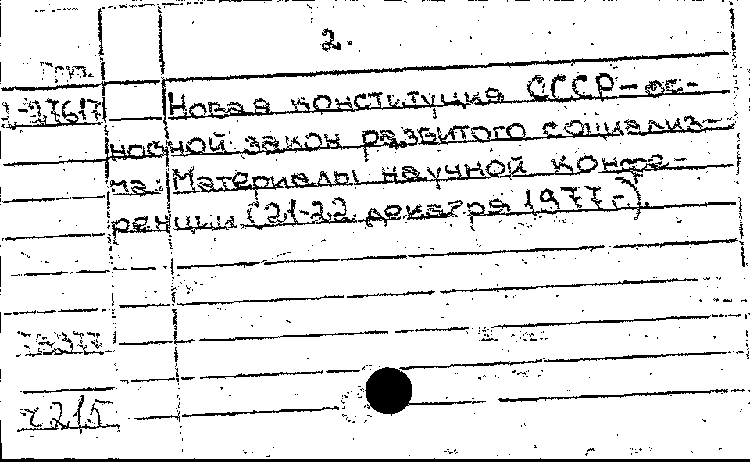 2.
Груз.
1-27617
Новая конституция СССР-ос-
новной закон развитого социализ-
ма: Материалы научной конфе-
ренции (21-22 декабря 1977 г.).
78377
215